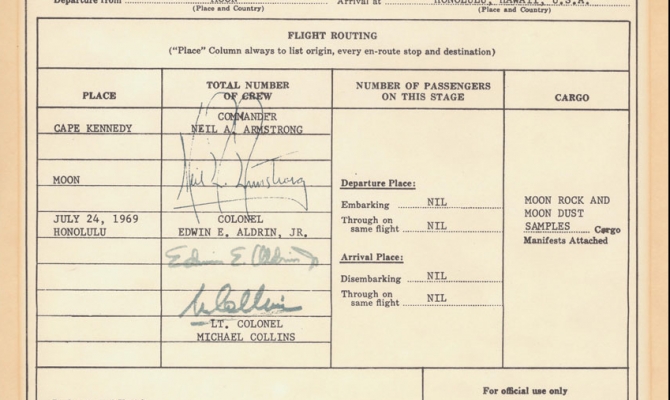 Departure from MOON Arrival at HONOLULU, HAWAII, U.S.A.
(Place and Country) (Place and Country)
FLIGHT ROUTING
("Place" Column always to list origin, every en-route stop and destination)
PLACE
TOTAL NUMBER
OF CREW
NUMBER OF PASSENGERS
ON THIS STAGE
CARGO
CAPE KENNEDY
MOON
JULY 24, 1969
HONOLULU
COMMANDER
NEIL A. ARMSTRONG
Neil A. Armstrong
COLONEL
EDWIN E. ALDRIN, JR.
Edwin E. Aldrin Jr
M Collins
LT. COLONEL
MICHAEL COLLINS
Departure Place:
Embarking NIL
Through on
same flight NIL
Arrival Place:
Disembarking NIL
Through on
same flight NIL
MOON ROCK AND
MOON DUST
SAMPLES Cargo
Manifests Attached
For official use only